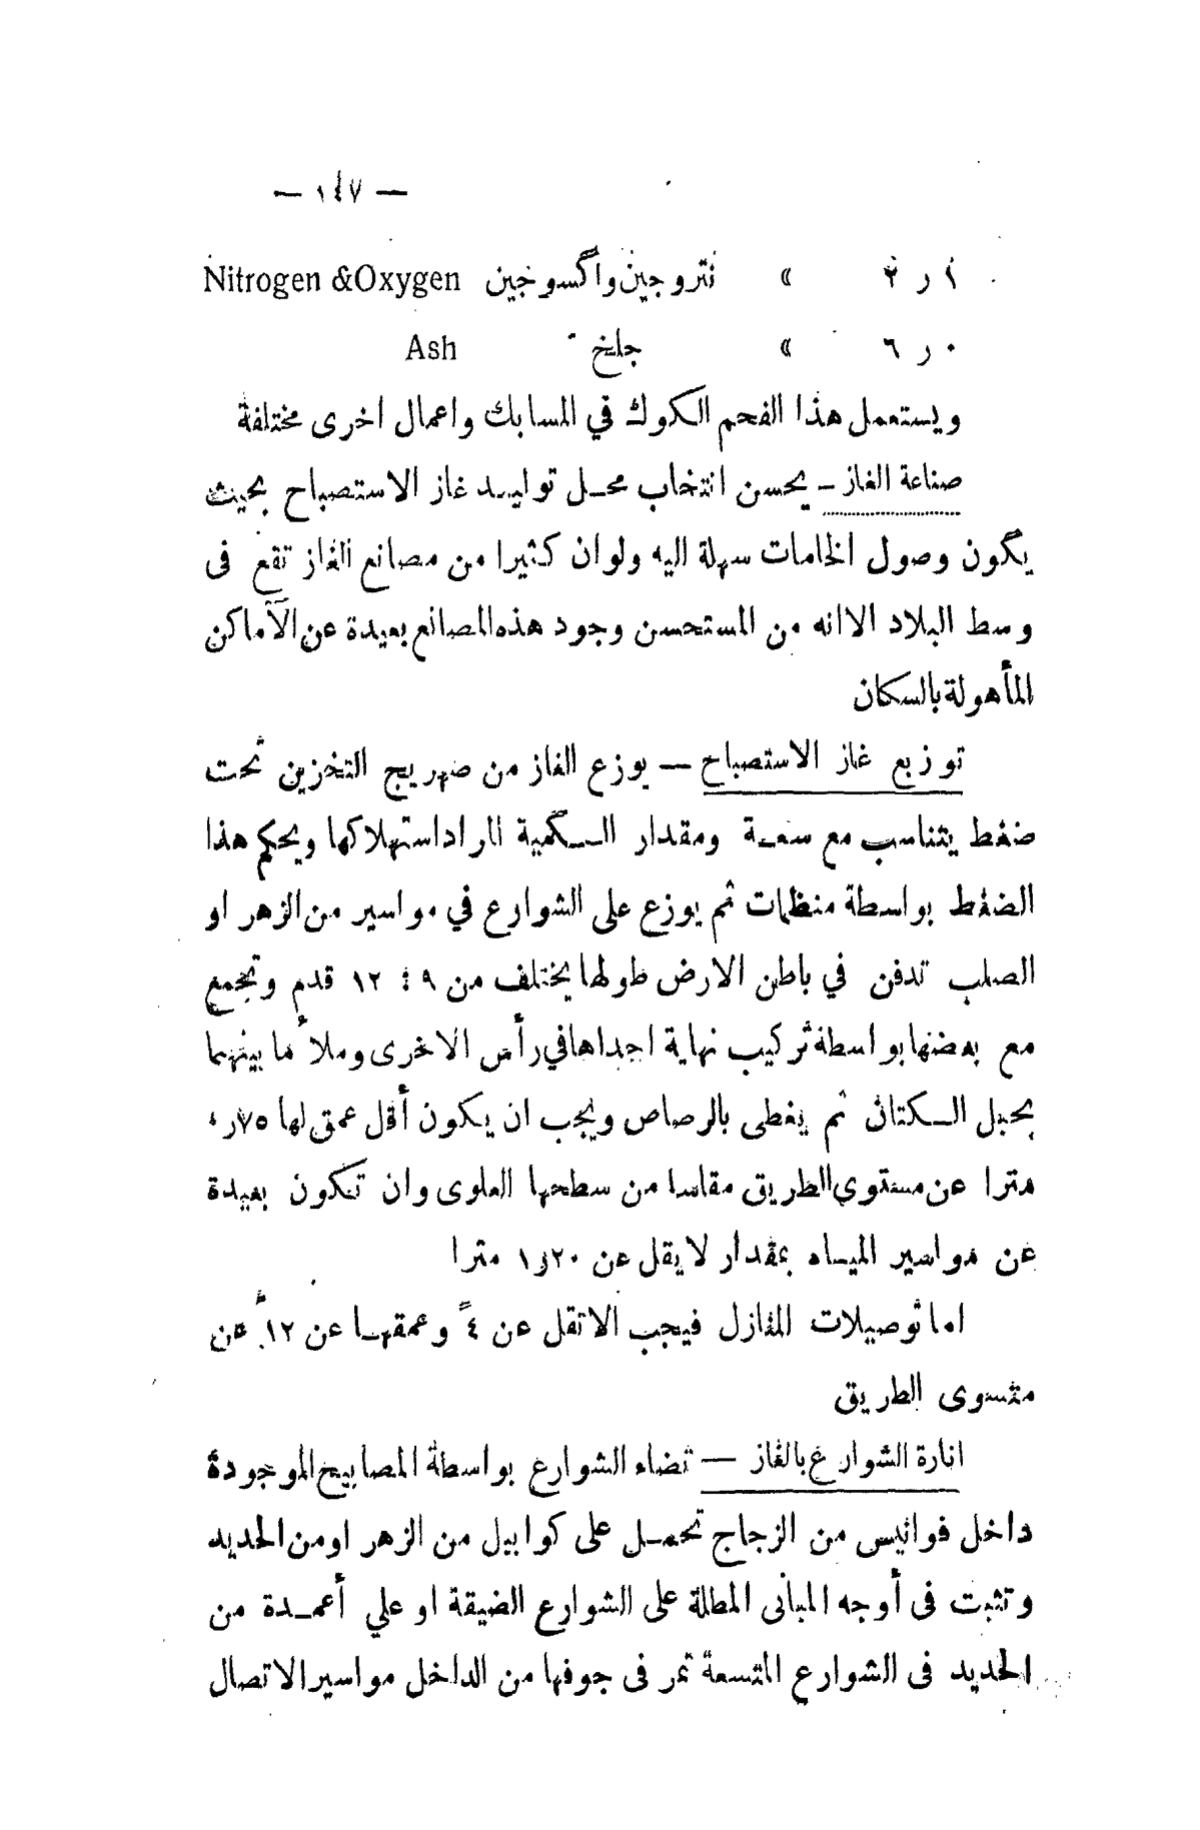 — ١٤٧ —
١ ر ٢ » نتروجين واكسوجين Nitrogen &Oxygen
٠ ر ٦ » جلخ Ash
ويستعمل هذا الفحم الكوك في المسابك واعمال اخرى مختلفة
صناعة الغاز — يحسن انتخاب محل توليد غاز الاستصباح بحيث
يكون وصول الخامات سهلة اليه ولوان كثيرا من مصانع الغاز تقع فى
وسط البلاد الاانه من المستحسن وجود هذه المصانع بعيدة عن الأماكن
المأهولة بالسكان
توزيع غاز الاستصباح — يوزع الغاز من صهريج التخزين تحت
ضغط يتناسب مع سعة ومقدار الكمية المراد استهلاكها ويحكم هذا
الضغط بواسطة منظمات ثم يوزع على الشوارع في مواسير من الزهر او
الصلب تدفن في باطن الارض طولها يختلف من ٩ : ١٢ قدم وتجمع
مع بعضها بواسطة تركيب نهاية احداها في رأس الاخرى وملأ ما بينهما
بحبل الكتان ثم يغطى بالرصاص ويجب ان يكون أقل عمق لها ٧٥ر٠
مترا عن مستوى الطريق مقاسا من سطحها العلوى وان تكون بعيدة
عن مواسير المياه بمقدار لا يقل عن ٢٠ر١ مترا
اما توصيلات المنازل فيجب الاتقل عن ٤ً وعمقها عن ١٢ً عن
متسوى الطريق
انارة الشوارع بالغاز — تضاء الشوارع بواسطة المصابيح الموجودة
داخل فوانيس من الزجاج تحمل على كوابيل من الزهر اومن الحديد
وتثبت فى أوجه المبانى المطلة على الشوارع الضيقة او علي أعمدة من
الحديد فى الشوارع المتسعة تمر فى جوفها من الداخل مواسير الاتصال